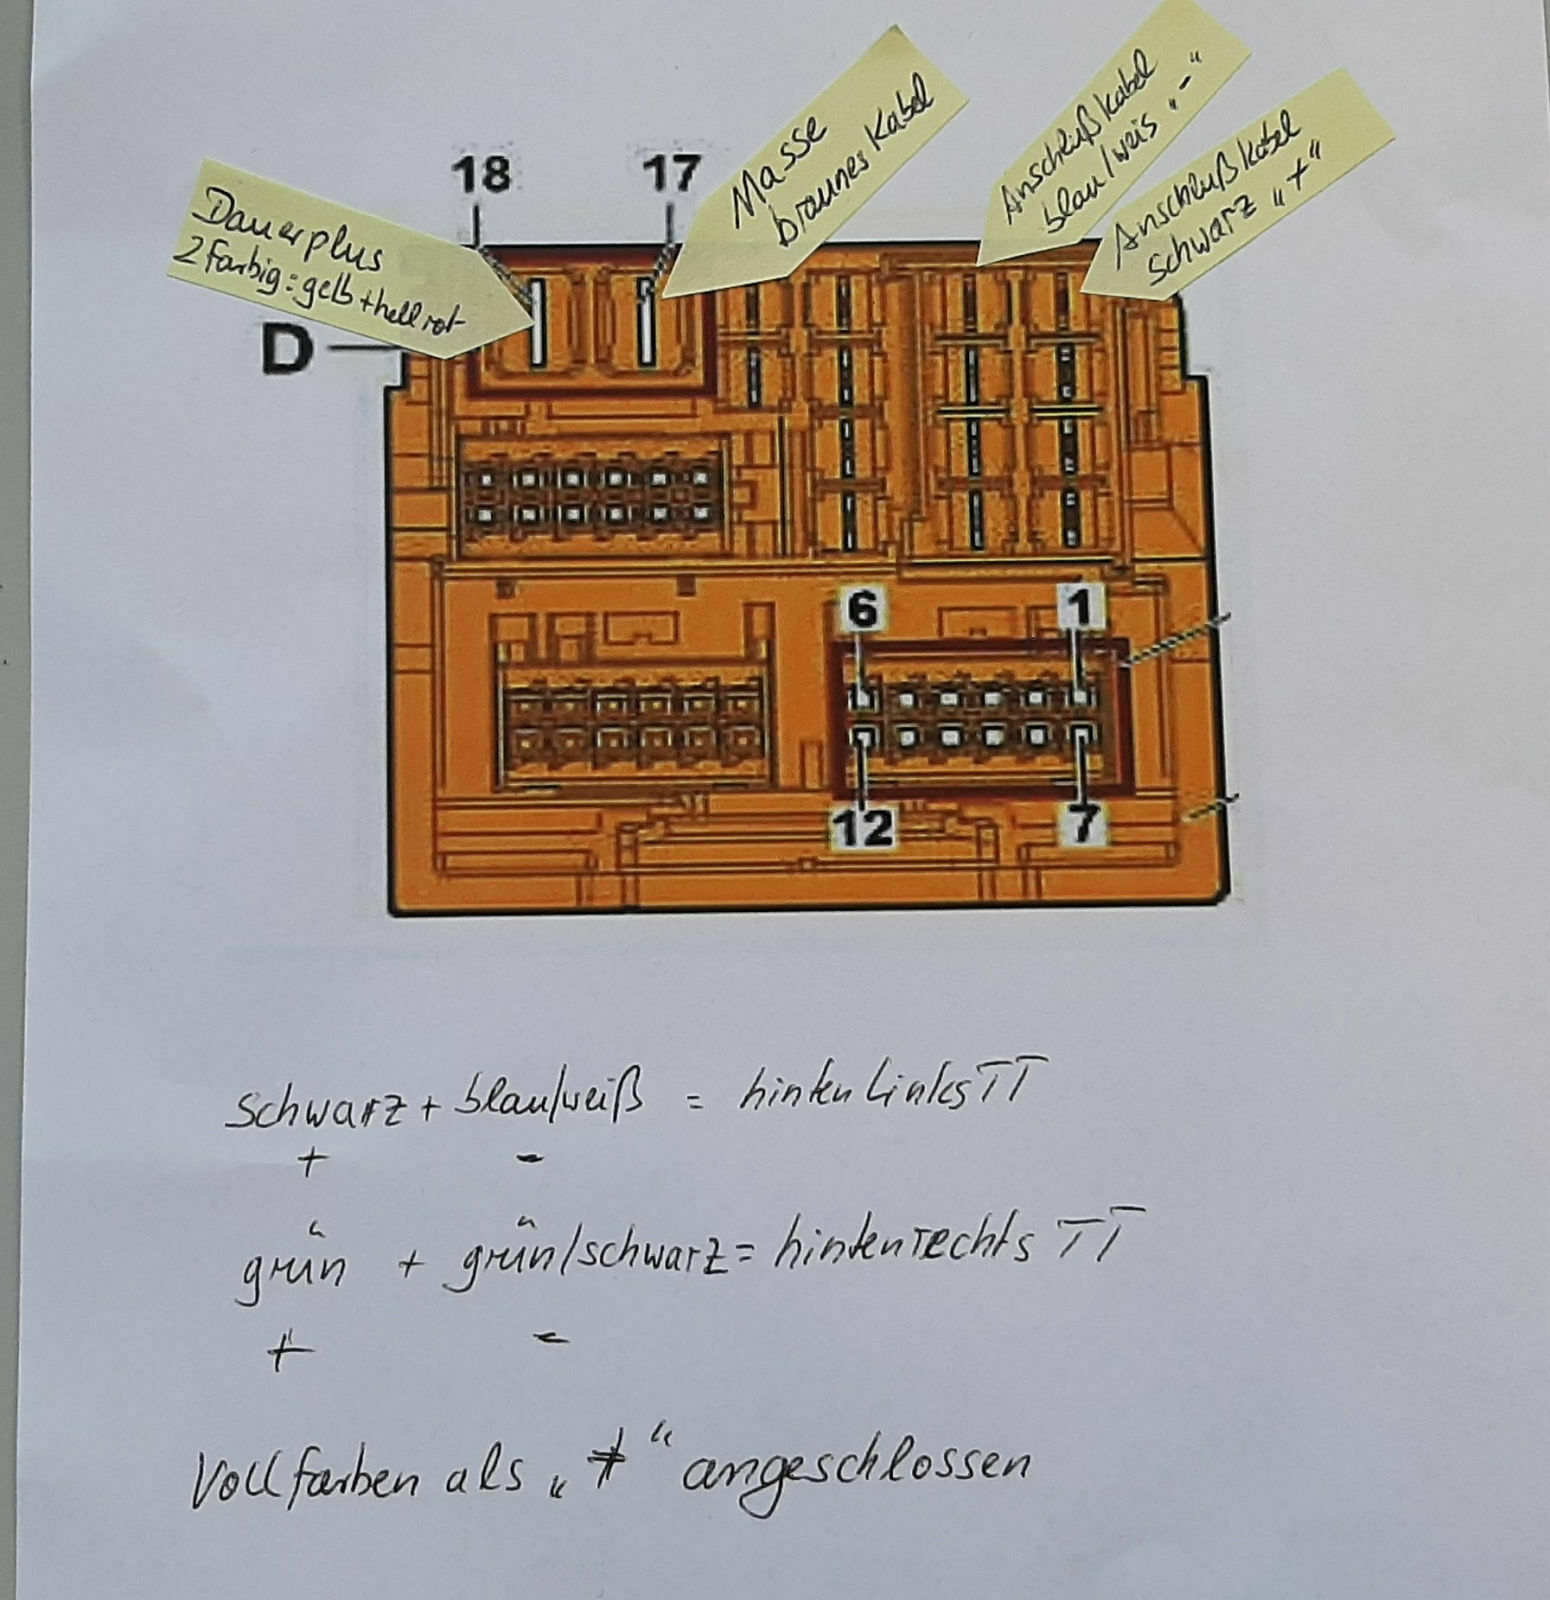 Dauerplus
2farbig: gelb + hellrot
18
17
Masse
braunes Kabel
Anschlußkabel
blau/weis „-“
Anschlußkabel
schwarz „+“
D
6
1
12
7
schwarz + blau/weiß = hinten Links TT
+ -
grün + grün/schwarz = hinten rechts TT
+ -
Vollfarben als „+“ angeschlossen